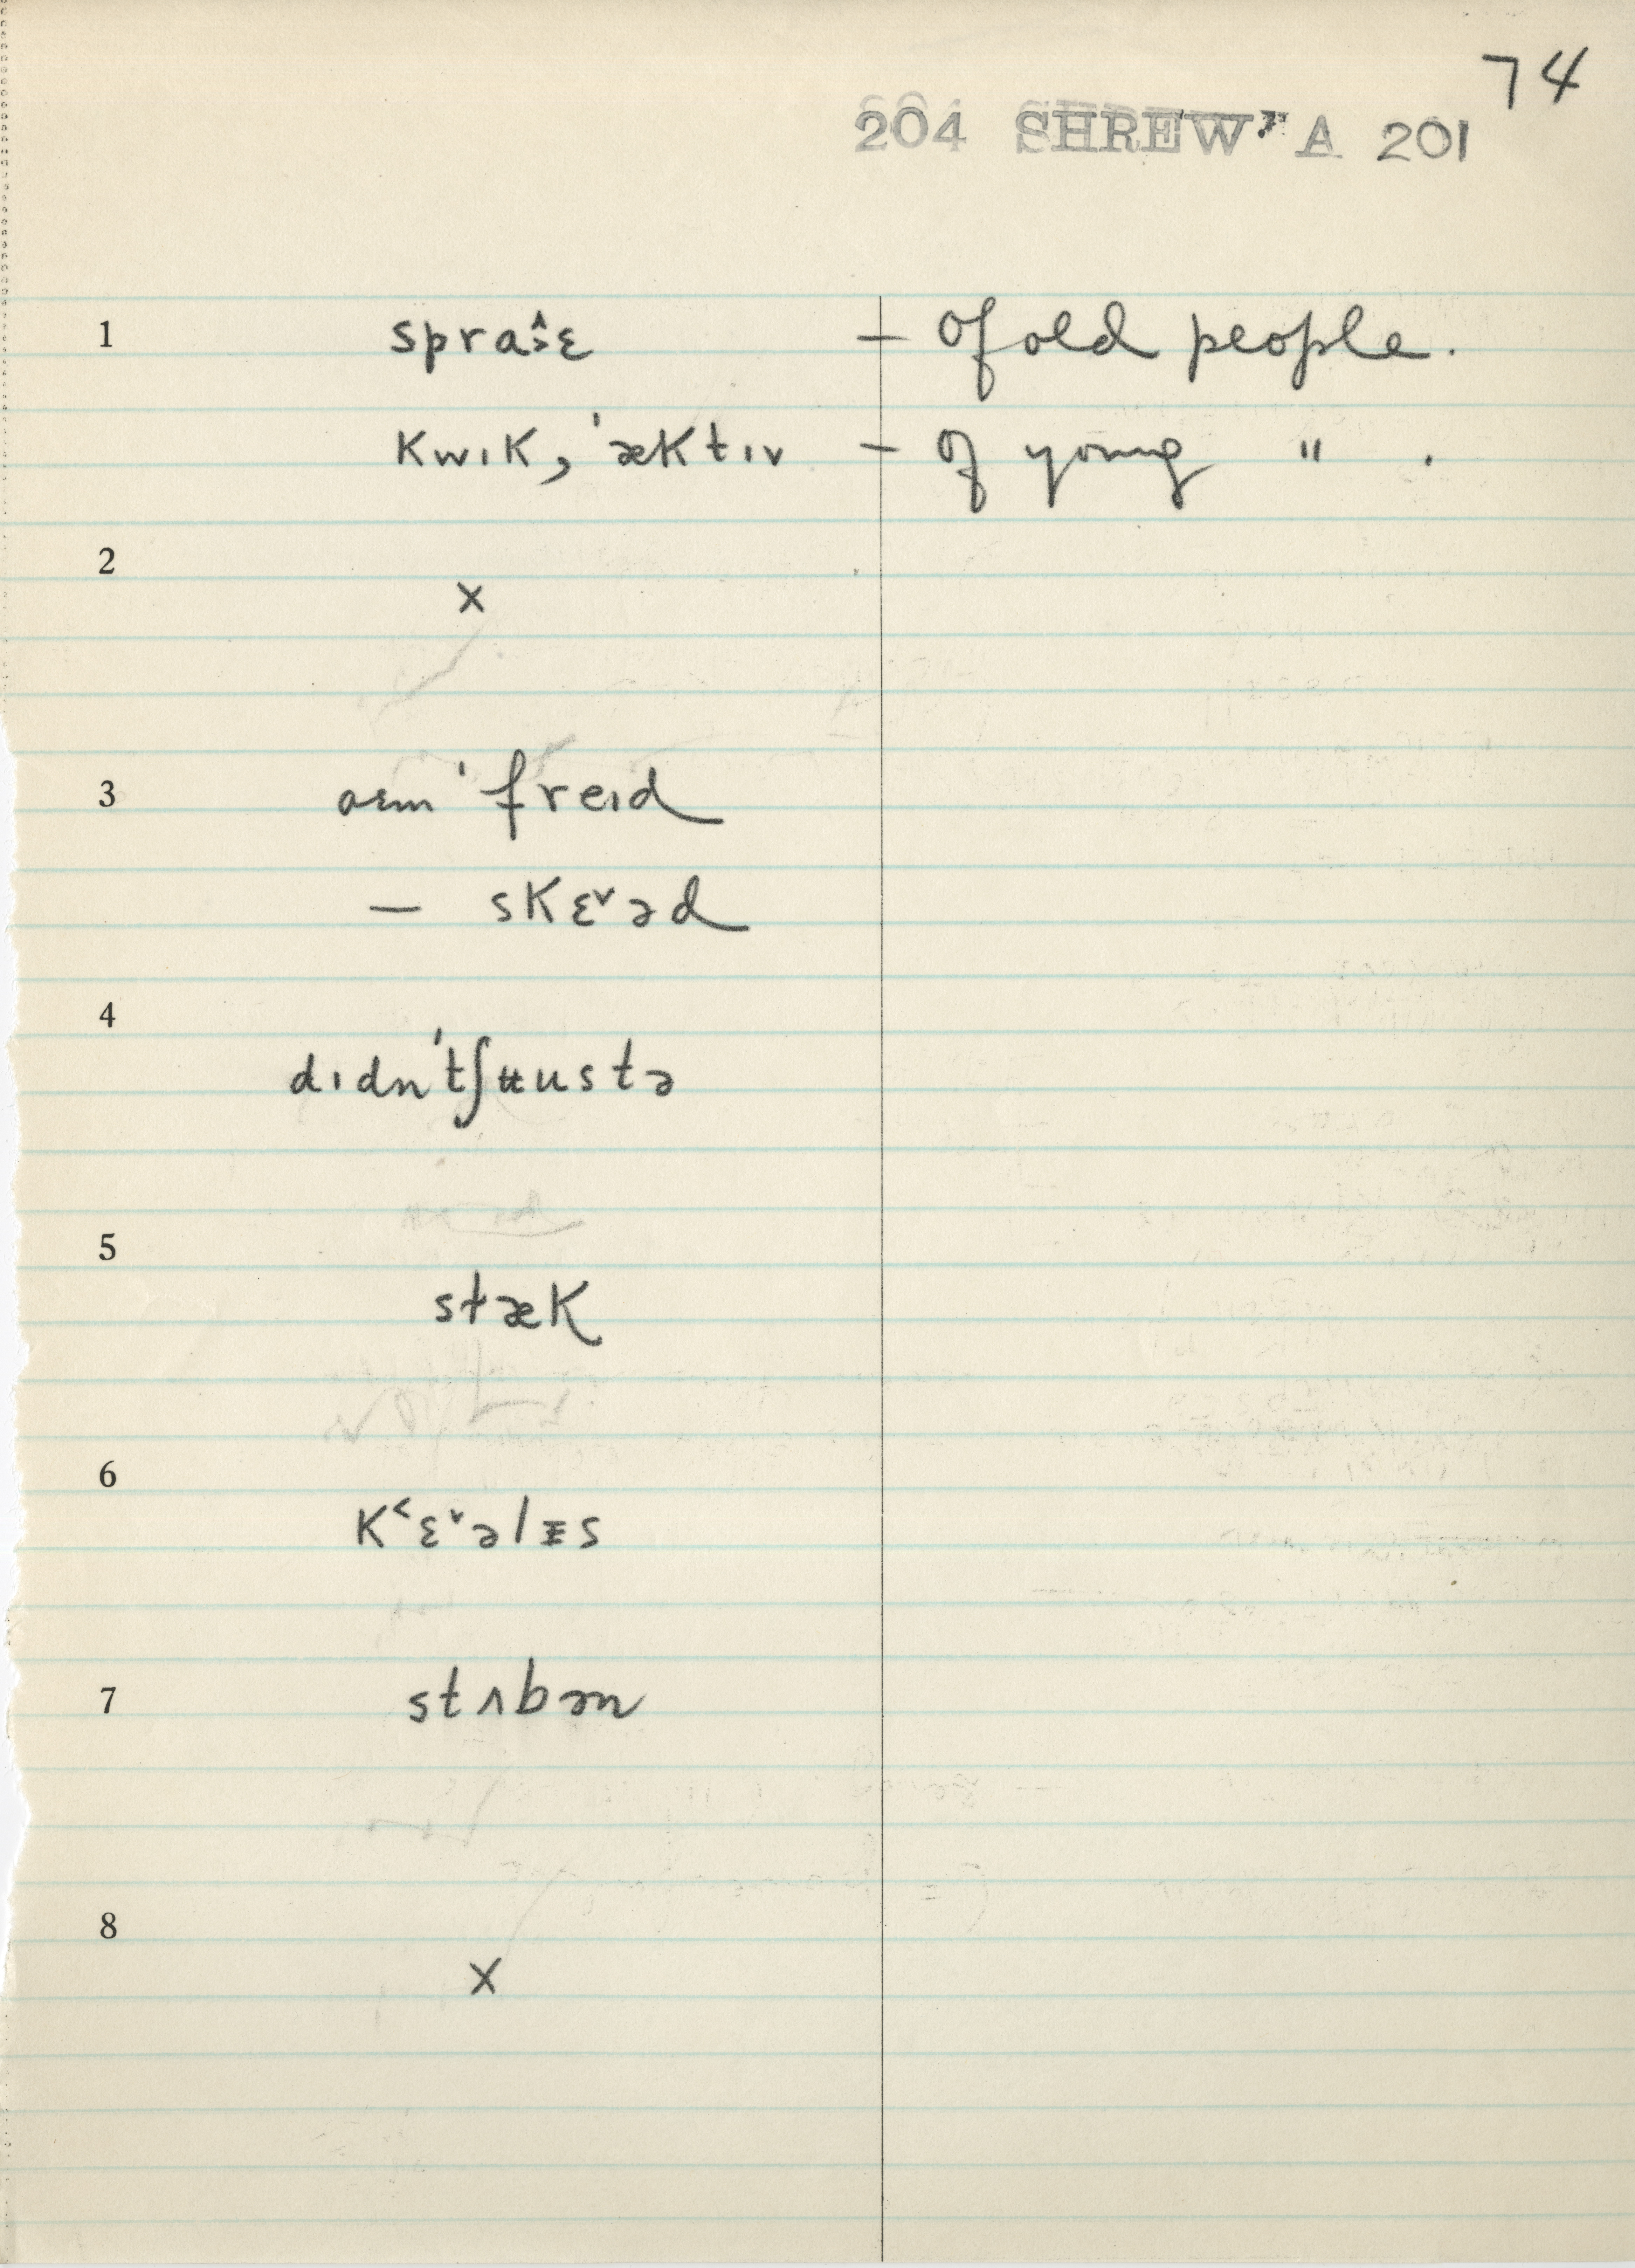 74
204 SHREW' A 201
1 spraˑ^ɛ – Of old people.
kwɪk, ˈæktɪv – Of young " .
2 ×
3 ɑɛm ˈfreɪd
— skɛ˅əd
4 dɪdnˈtʃʉustə
5 stæk
6 k˂ɛ˅əlᵻs
7 stʌbən
8 ×